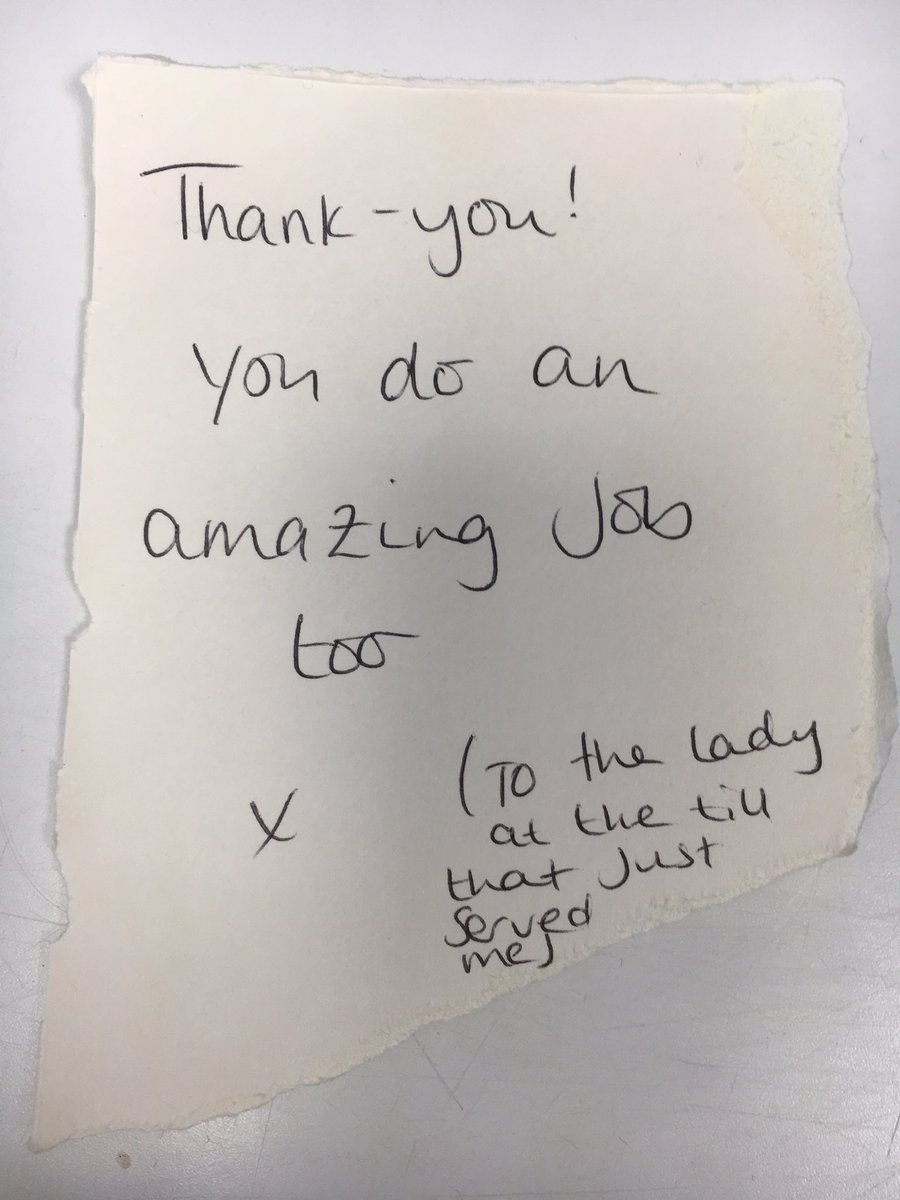 Thank-you!
You do an
amazing Job
too
x
(To the lady
at the till
that just
served
me)